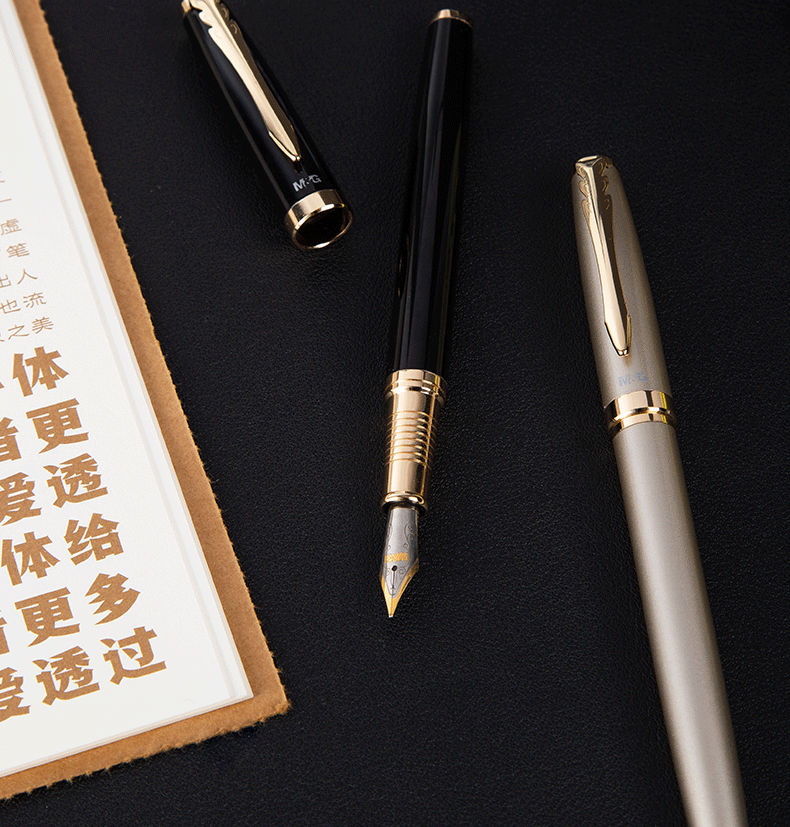 虚
笔
出人
也流
之美
体
者更
爱透
体给
者更多
爱透过
M&G
M&G